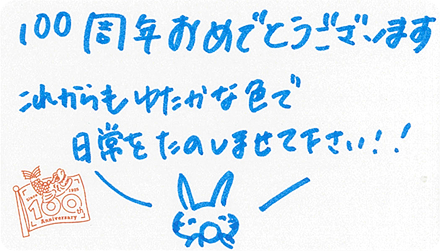 100周年おめでとうございます
これからもゆたかな色で
日常をたのしませて下さい!!
100th
Anniversary